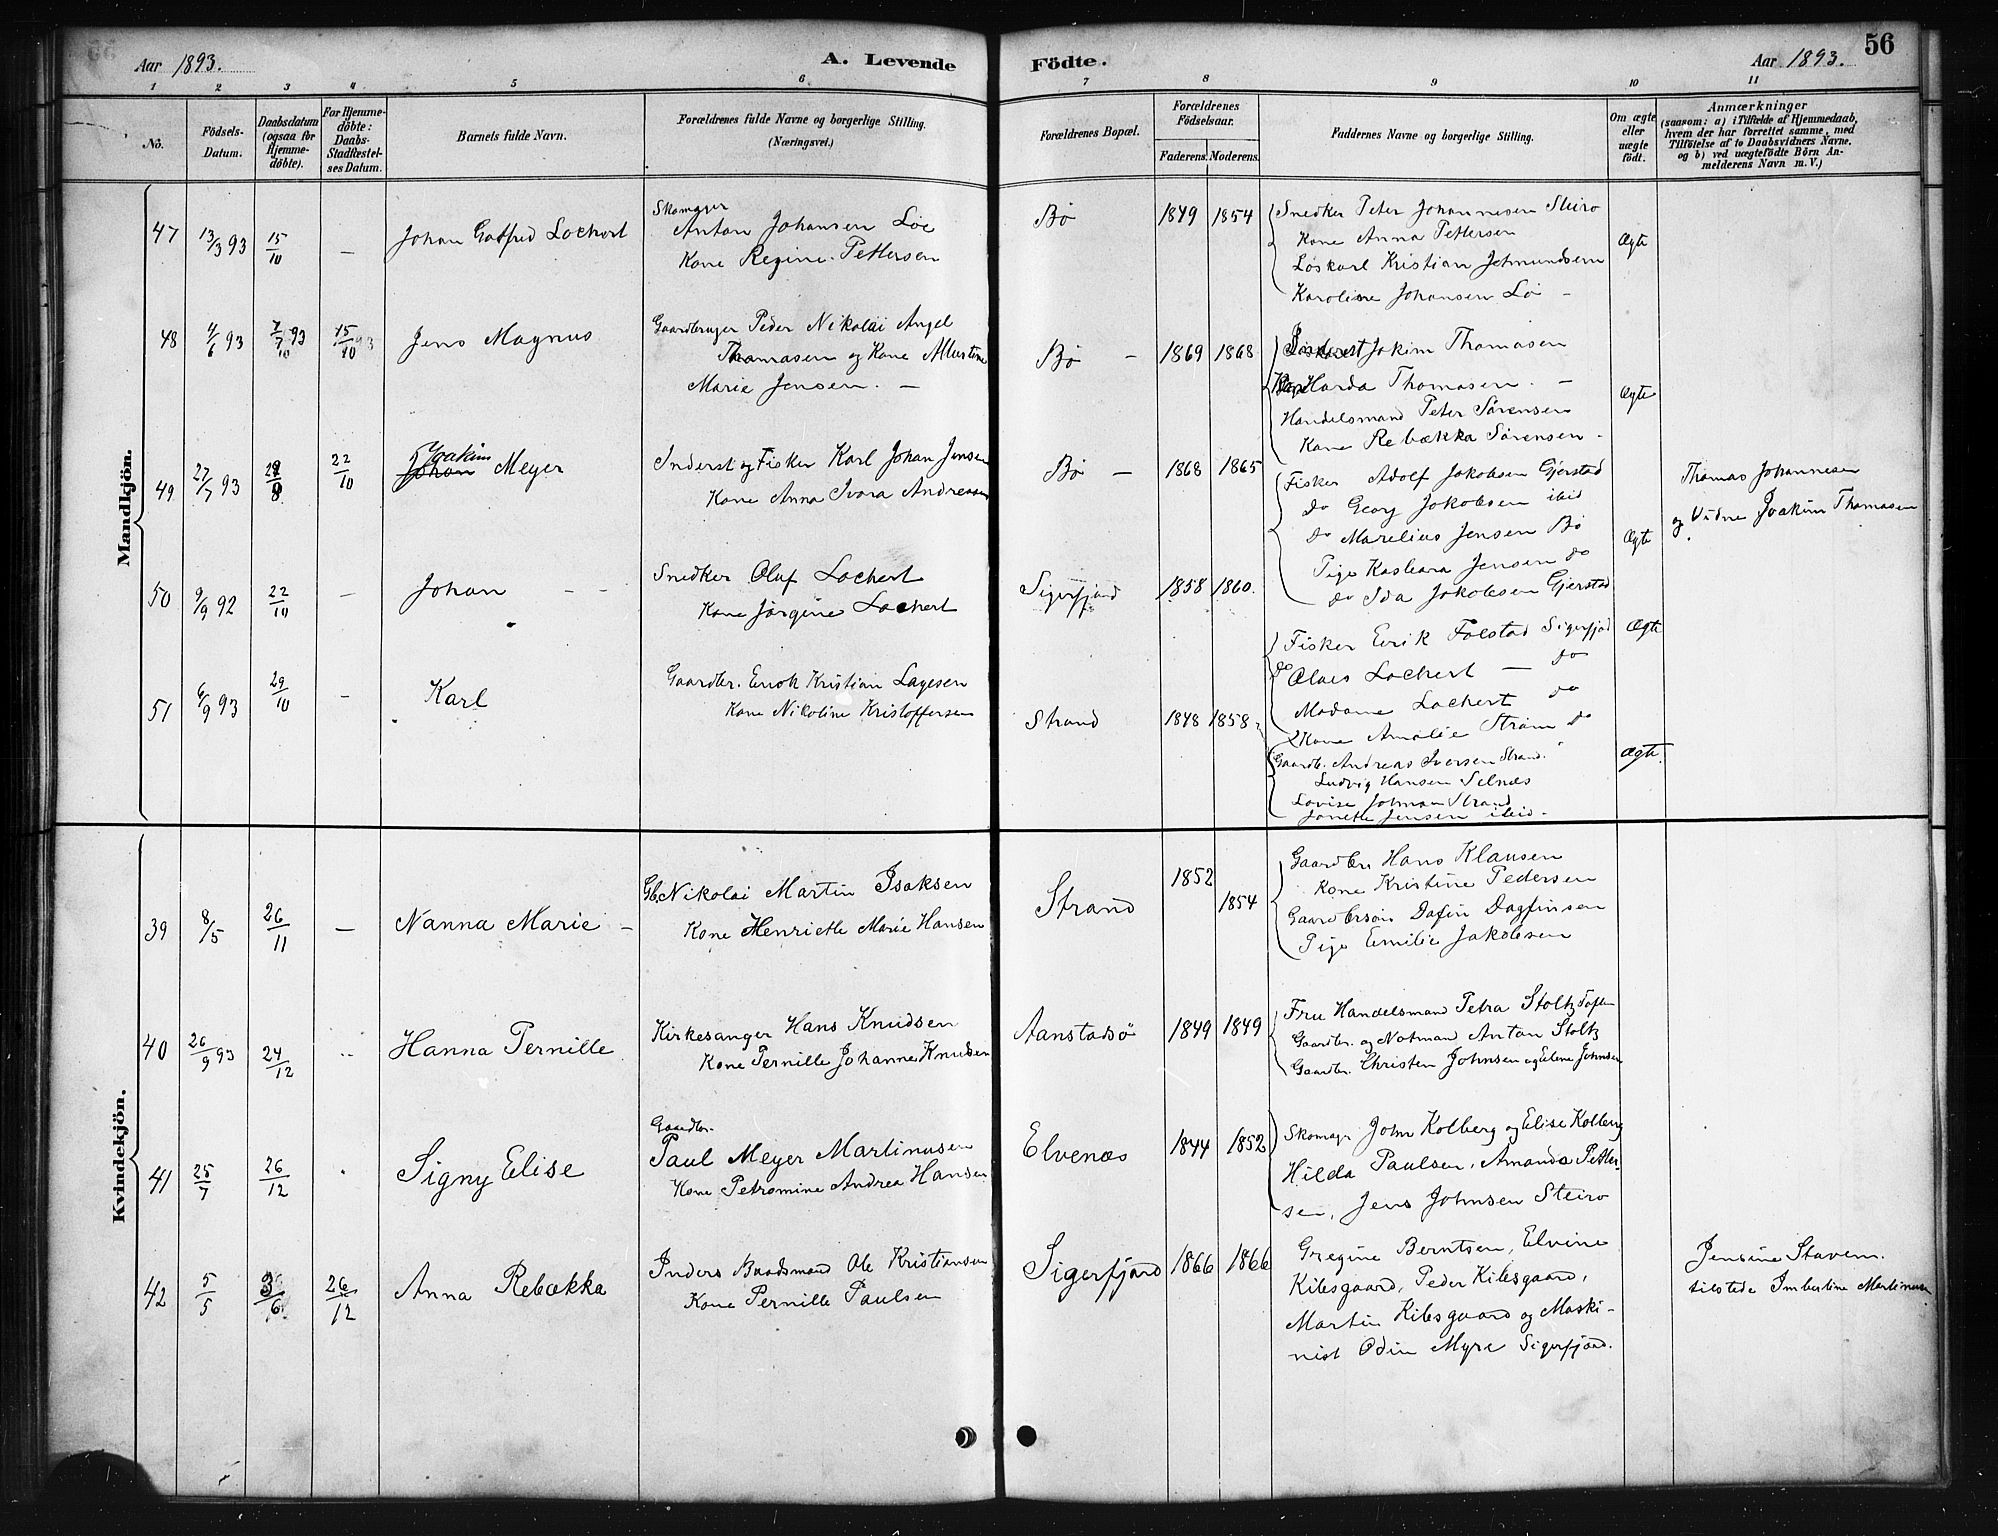 Aar 1893.
A. Levende
Födte.
Aar 1893.
56
1 2 3 4 5 6 7 8 9 10 11
No.
Födsels-
Datum.
Daabsdatum
(ogsaa for
Hjemme-
döbte).
For Hjemme-
döbte:
Daabs-
Stadfæstel-
ses Datum.
Barnets fulde Navn.
Forældrenes fulde Navne og borgerlige Stilling.
(Næringsvei.)
Forældrenes Bopæl.
Forældrenes
Födselsaar.
Faderens. Moderens.
Faddernes Navne og borgerlige Stilling.
Om ægte
eller
uægte
födt.
Anmærkninger
(saasom: a) i Tilfælde af Hjemmedaab,
hvem der har forrettet samme, med
Tilföielse af to Daabsvidners Navne,
og b) ved uægtefödte Börn An-
melderens Navn m. V.)
Mandkjön.
47 13/3 93 15/10 — Johan Gotfred Lochert
Skomager
Anton Johansen Löe
Kone Regine Pettersen
Bö 1849 1854
Snedker Peter Johannesen Steiro
Kone Anna Pettersen
Löskarl Kristian Jetmundsen
Karoline Johansen Lö —
Ægte
48 4/6 93 7/7 93 15/10 93 Jens Magnus
Gaardbruger Peder Nikolai Angel
Thomasen og Kone
Marie Jensen. —
Bö — 1869 1868
Jokim Thomasen
Harda Thomasen. —
Handelsmand Peter Sörensen
Kone Rebækka Sörensen.
Ægte
49 27/7 93 22/10 Joakim Meyer
Inderst og Fisker Karl Johan Jensen
Kone Anna Ivara Andreasen
Bö — 1868 1865
Fisker Adolf Jakobsen Gjerstad
Do Georg Jakobsen ibid
Do Marelius Jensen Bö
Pige Kasbara Jensen do
do Ida Jakobsen Gjerstad
Ægte
Thomas Johannesen
og Vidne Joakim Thomasen
50 9/9 92 22/10 — Johan — —
Snedker Oluf Lochert
Kone Jörgine Lochert
Sigerfjord 1858 1860.
Fisker Erik Falstad Sigerfjod
do Olaes Lochert — do
Madame Lochert do
Kone Amalie Ström do
Ægte
51 6/9 93 29/10 — Karl
Gaardbr. Enok Kristian Lagesen
Kone Nikoline Kristoffersen
Strand 1848 1858
Gaardb. Andreas Iversen Strand.
Ludvig Hansen Selnæs
Lovise Johman Strand
Janette Jensen ibid.
Ægte.
Kvindekjön.
39 8/5 26/11 — Nanna Marie —
Gb. Nikolai Martin Isaksen
Kone Henriette Marie Hansen
Strand 1852 1854
Gaardbr Hans Klausen
Kone Kristine Pedersen
Gaardbrsön Dafin Dagfinsen
Pige Emilie Jakobsen
40 26/9 93 24/12 Hanna Pernille
Kirkesanger Hans Knudsen
Kone Pernille Johanne Knudsen
Aanstadsö 1849 1849
Fru Handelsmand Petra Stoltz
Gaardbr. og Notmand Anton Stoltz
Gaardbr. Christen Johnsen og Elene Johnsen
41 25/7 26/12 Signy Elise
Gaardbr.
Paul Meyer Martinusen
Kone Petromine Andrea Hansen
Elvenæs 1844 1852
Skomagr John Kolberg og Elise Kolberg
Hilda Paulsen, Amanda Petter-
sen, Jens Johnsen Steiro
42 5/5 3/6 26/12 Anna Rebækka
Inders Baadsmand Ole Kristiansen
Kone Pernille Paulsen
Sigerfjord 1866 1866
Gregine Berntsen, Elvine
Kilesgaard, Peder Kilesgaard,
Martin Kilesgaard og Maski-
nist Odin Myre Sigerfjord.
Jensine Stavem.
tilstede Imbertine Martinusen